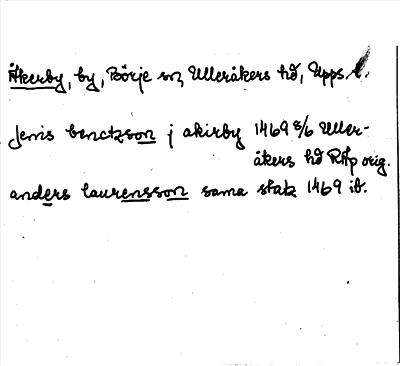 Åkerby, by, Börje sn, Ulleråkers hd, Upps. l.
jenis benctzson j akirby 1469 8/6 Uller-
åkers hd RAp orig.
anders laurensson sama stadz 1469 ib.